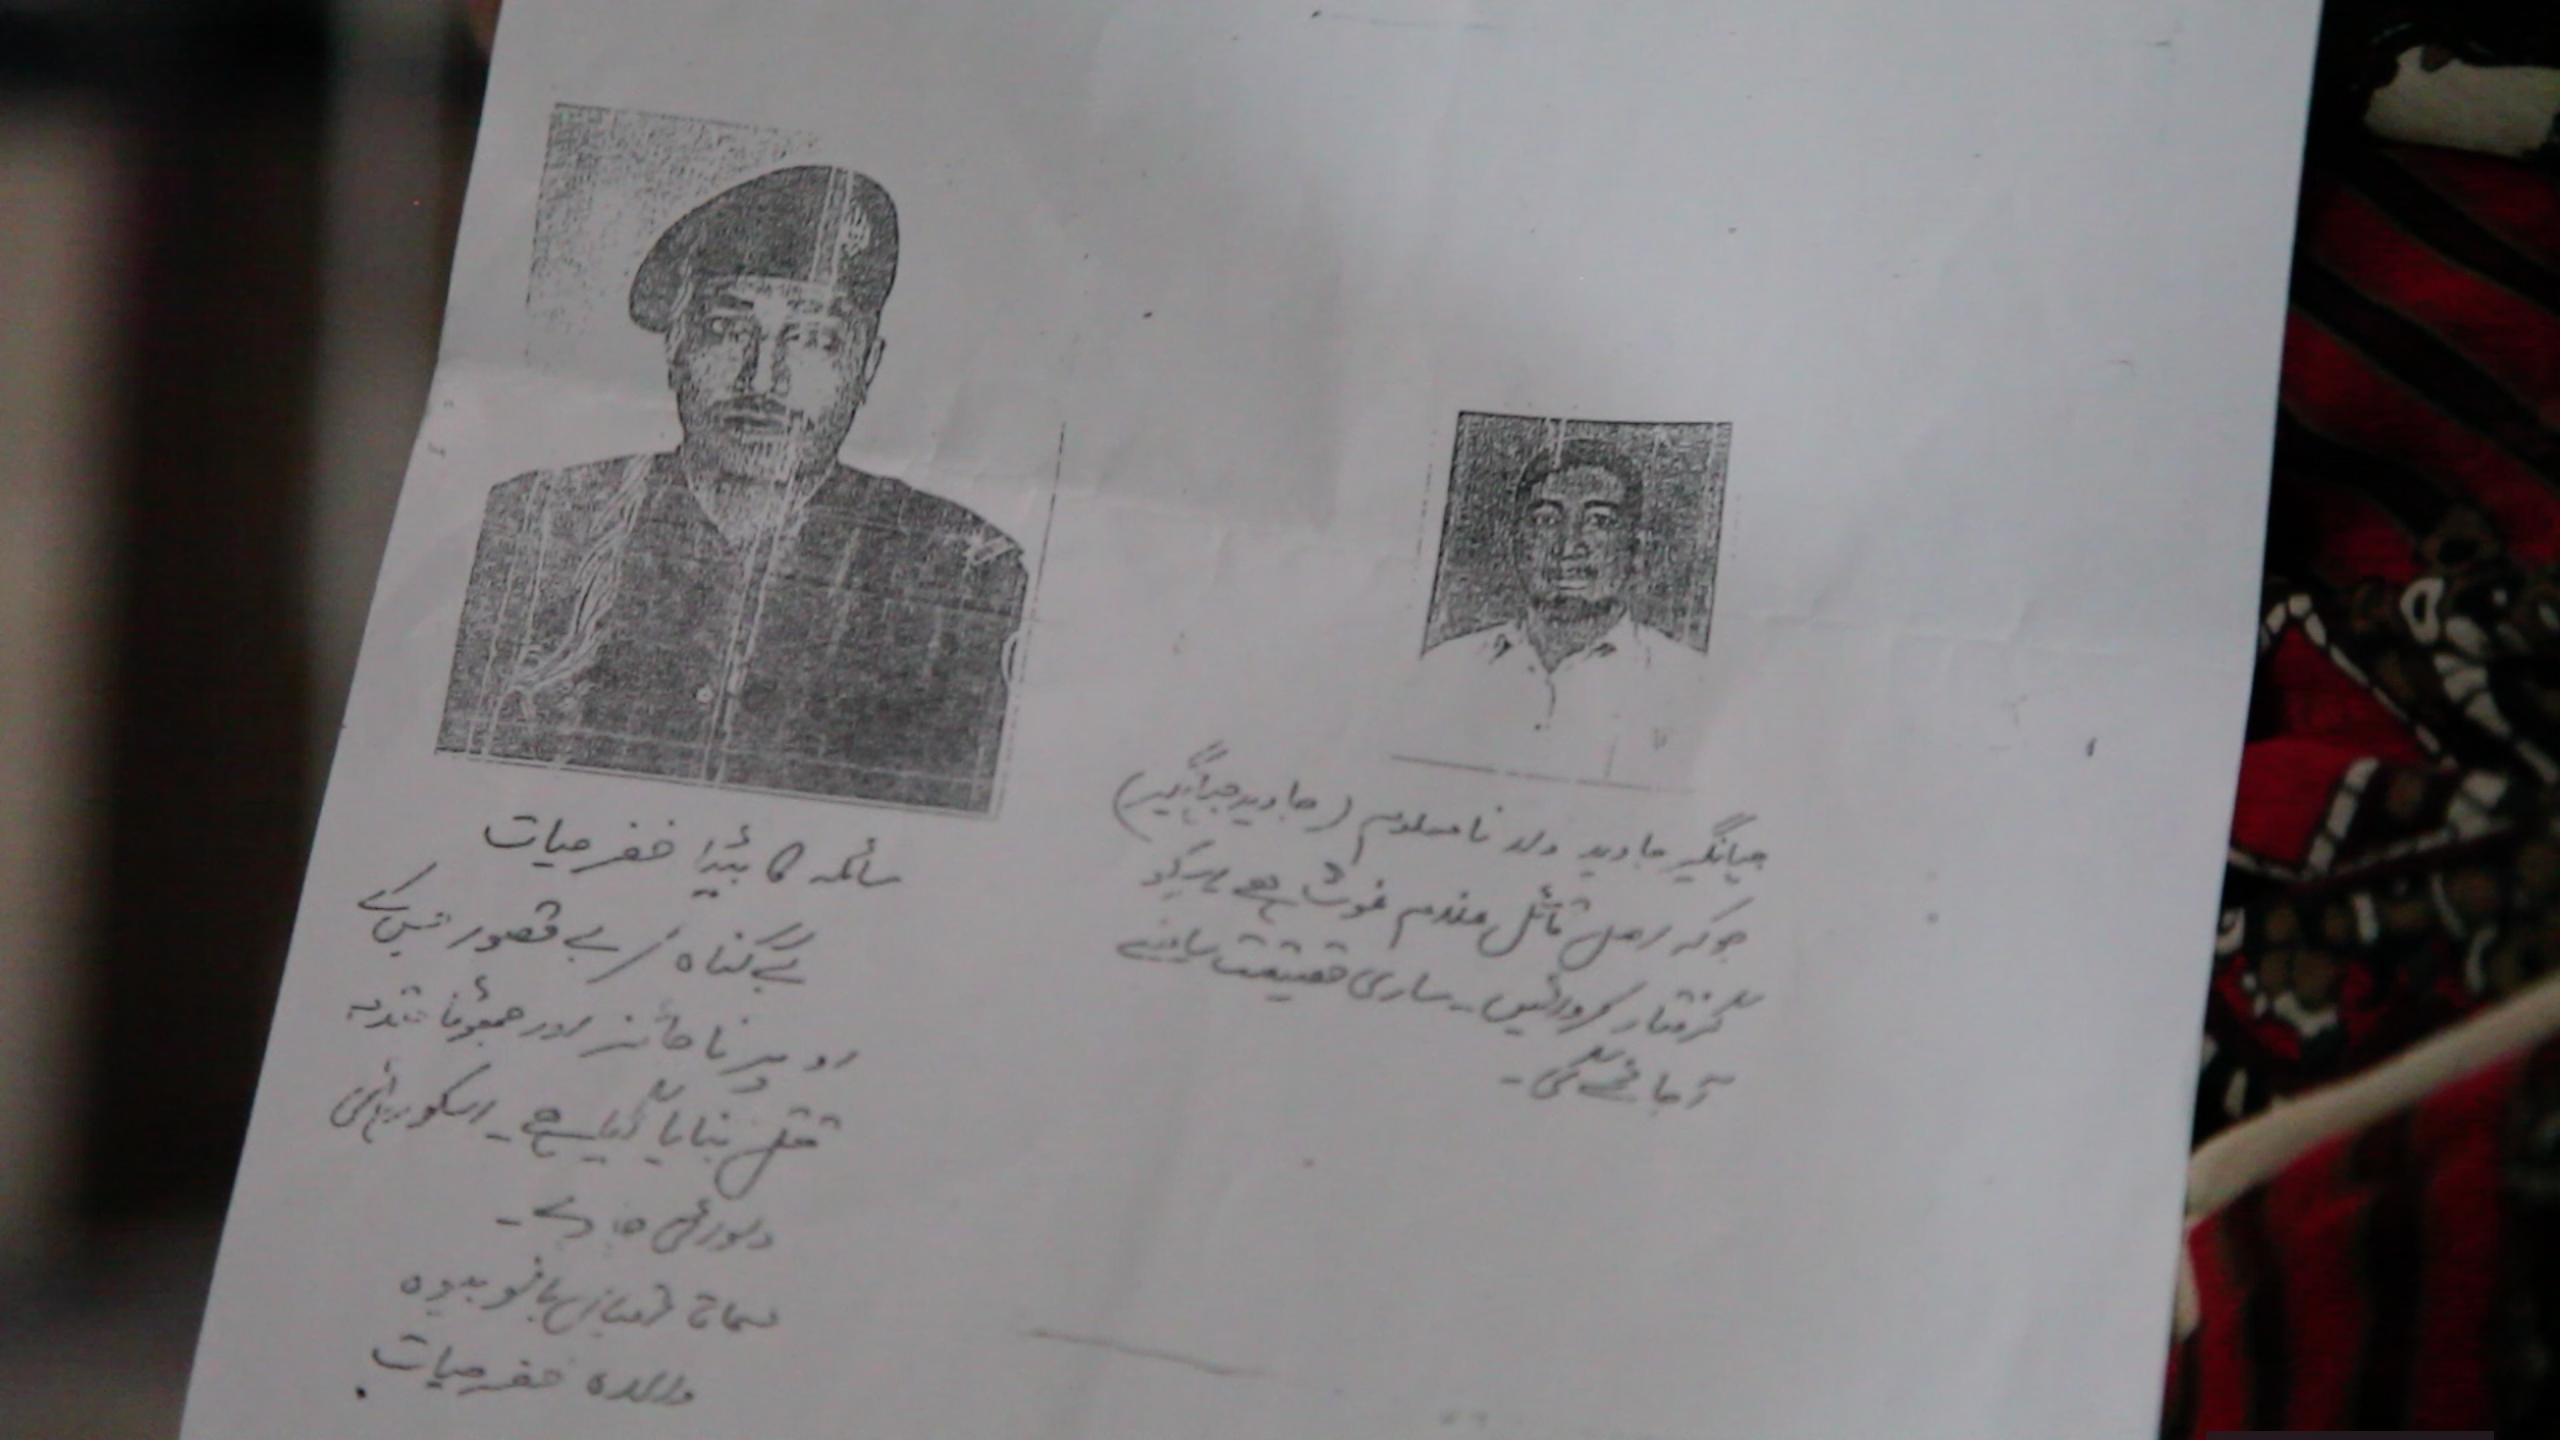 جہانگیر جاوید ولد نامعلوم (جاوید جہانگیر)
جوکہ اصل قاتل مقدم غوث ہے اس کو
گرفتار کروائیں۔ ساری حقیقت سامنے
آجائے گی۔
سائلہ کا بیٹا خضر حیات
بے گناہ / بے قصور جس کے
اوپر ناجائز اور جھوٹا مقدمہ
قتل بنایا گیا ہے۔ اسکو رہائی
دلوائی جاوے۔
مسماۃ بانو بیوہ
والدہ خضر حیات